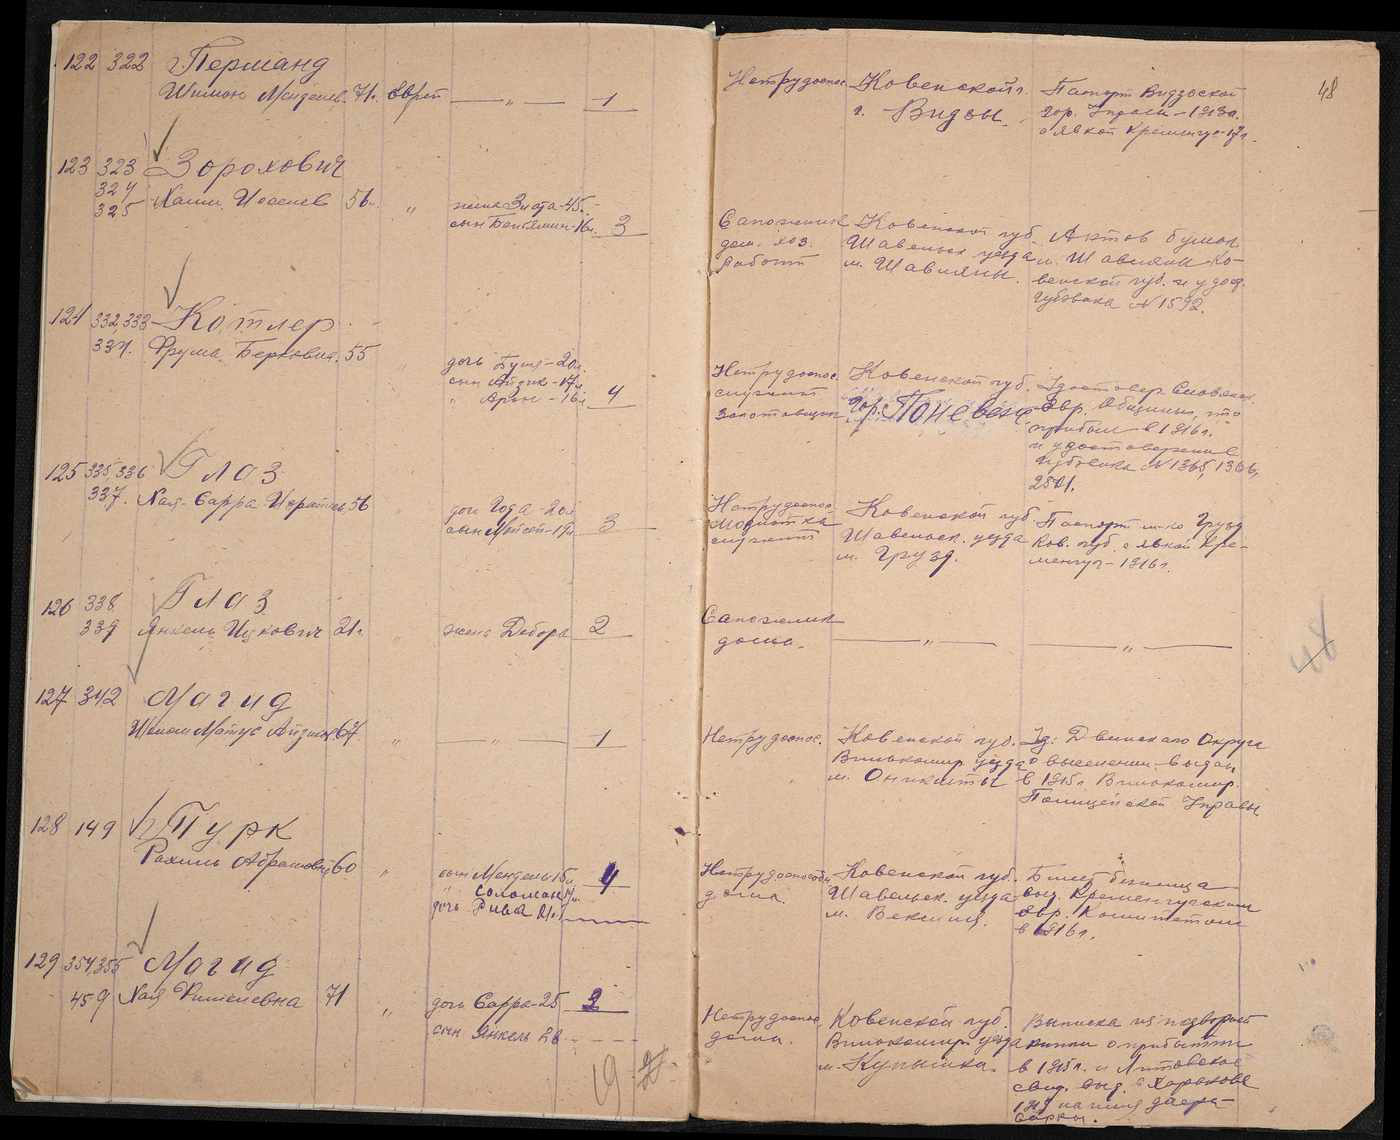 122 322 Перманд
Шимон Менделев. 71л. еврей — „ — 1
Нетрудоспос. Ковенской г.
г. Видзы.
Паспорт Видзской
гор. Управы - 1913г.
с явкой Кременчуг-17г.
48
123 323 Зорохович
324
325 Хаим 56л. „ жена Злота-45л.
сын Беньямин-16л. 3
Сапожник
дом. хоз.
работн
Ковенской губ.
Шавельск уезда
м. Шавляны.
Актов бумаг
м. Шавляны Ко-
венской губ. и удост.
Губэвака N 1592.
124 332,333 Котлер
334. Фрума Беркович. 55 „ дочь Буня-20л.
сын Айзик-17л.
„ Арон -16л 4
Нетрудоспос.
служит
Заготовщик
Ковенской губ.
гор. Поневеж
Удостовер. Словянск.
Евр. Общины, что
прибыли в 1916г.
и удостоверение
Губэвака N 1365, 1366,
2501.
125 335,336 Глаз
337. Хая-Сарра 56 дочь Года -20л
сын 19л. 3
Нетрудоспос.
Модистка
служит
Ковенской губ
Шавельск. уезда
м. Грузд.
Паспорт м-ко Грузд
Ков. губ. с явкой Кре-
менчуг - 1916г.
126 338 Глаз
339 Янкель Ицкович 21г. „ жена Дебора 2
Сапожник
дома.
— „ — — „ —
127 342 Магид
Шолом Мотус 67. „ — „ — 1
Нетрудоспос. Ковенской губ.
Вилькомир. уезда
м. Оникшты
Уд. Двинскаго Округа
о выселении - выдан
в 1915г. Вилькомир.
Полицейской Управы
128 149 Турк
Рахиль Абрамовн. 60 „ сын Мендель 15л.
„ Соломон 17л.
дочь Рива 21г. 4
Нетрудоспособн
дома.
Ковенской губ.
Шавельск. уезда
м. Векшня.
Билет беженца
выд. Кременчугским
Евр. Комитетом
в 1916г.
129 354,355 Магид
459 Хая Фишелевна 71 „ дочь Сарра-25
сын Янкель 28 3
Нетрудоспос.
дома.
Ковенской губ.
Вилькомир. уезда
м. Купишки.
Выписка из подворной
книги о прибытии
в 1915г. и Литовское
свид. выд. в Харькове
на имя дочери
Сарры.
19